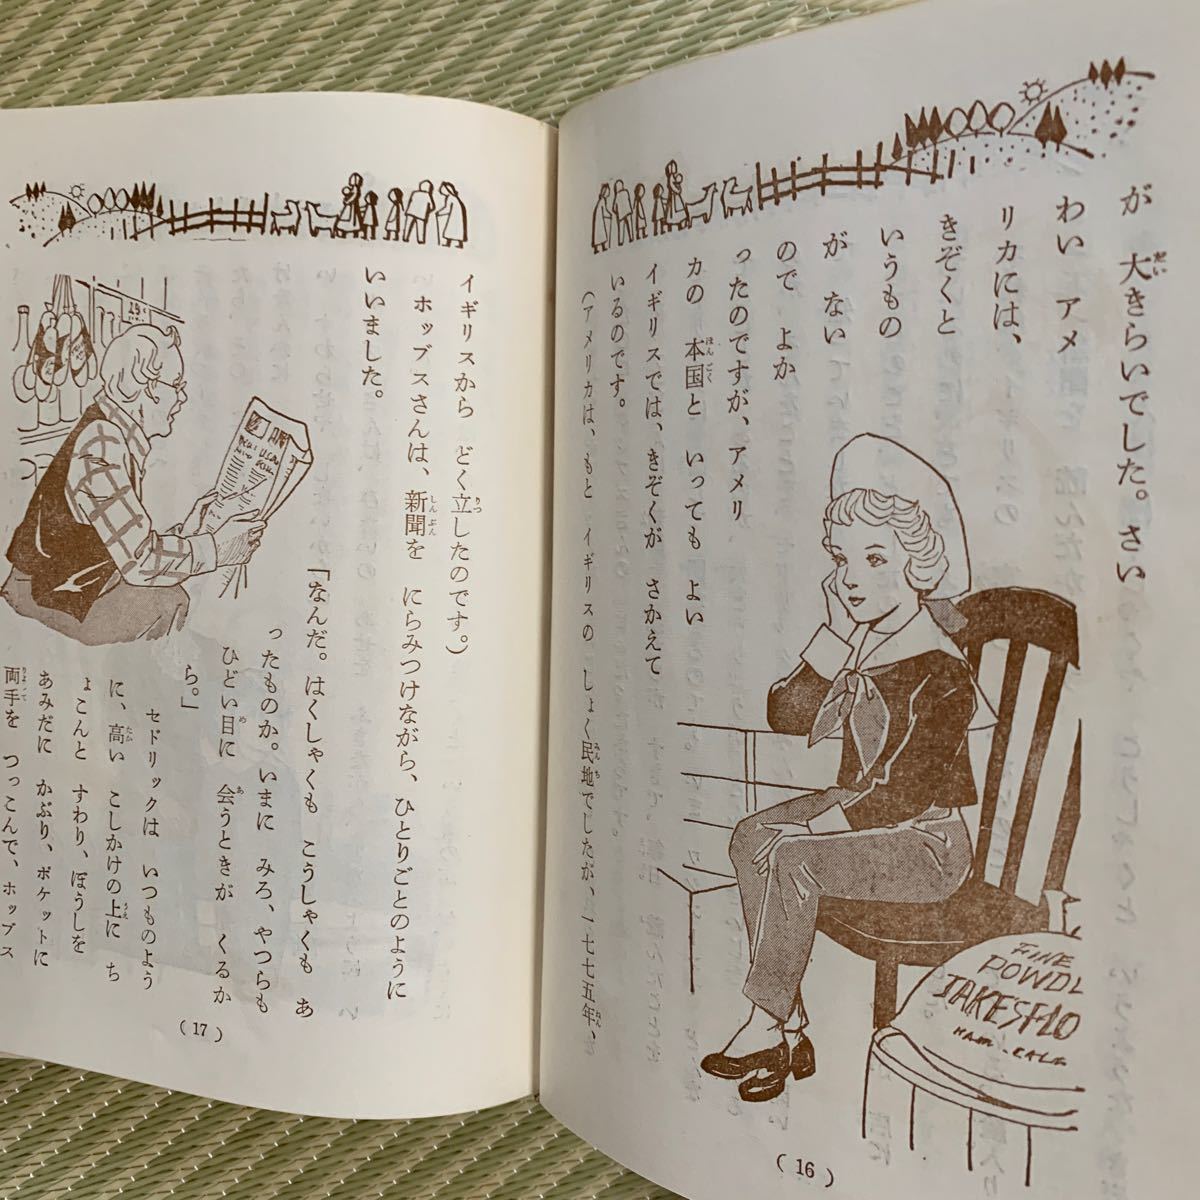 が 大きらいでした。さい
わい アメ
リカには、
きぞくと
いうもの
が ない
ので よか
ったのですが、アメリ
カの 本国と いっても よい
イギリスでは、きぞくが さかえて
いるのです。
(アメリカは、もと イギリスの しょく民地でしたが、一七七五年、
FINE
POWDE
JAKESFLO
( 16 )
イギリスから どく立したのです。)
ホップスさんは、新聞を にらみつけながら、ひとりごとのように
いいました。
「なんだ。はくしゃくも こうしゃくも あ
ったものか。いまに みろ、やつらも
ひどい目に 会うときが くるか
ら。」
セドリックは いつものよう
に、高い こしかけの上に ち
ょこんと すわり、ぼうしを
あみだに かぶり、ポケットに
両手を つっこんで、ホップス
( 17 )